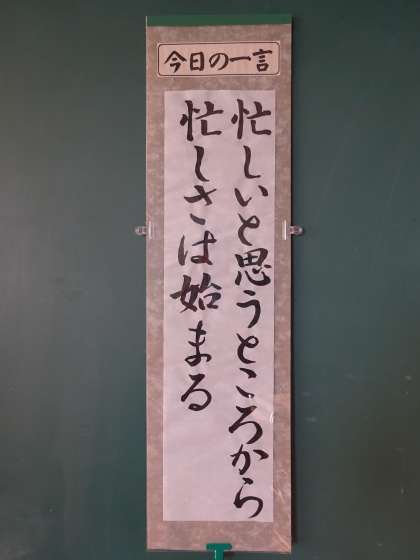 今日の一言
忙しいと思うところから
忙しさは始まる